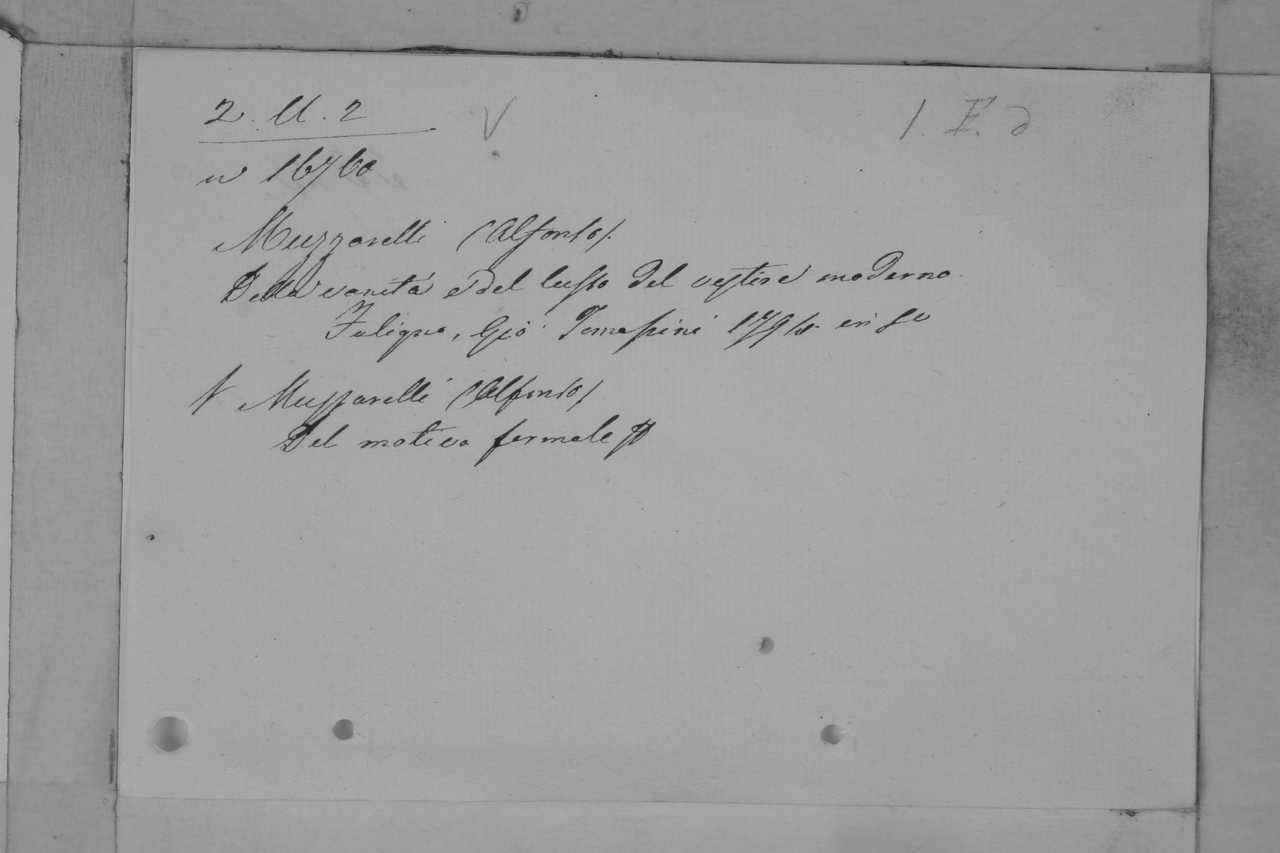 2. U. 2 V 1. F. d
n 16760
Muzzarelli (Alfonso).
Della vanità e del lusso del vestire moderno.
Foligno, Gio. Tomassini 1794. in 8º
V Muzzarelli (Alfonso)
Del motivo formale